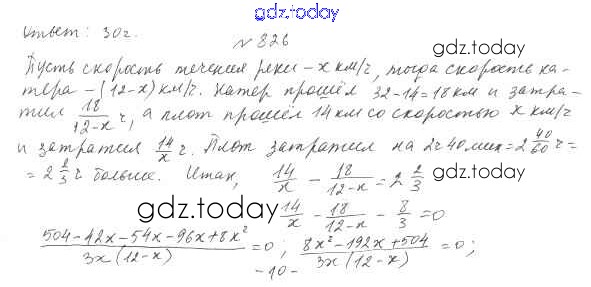 gdz.today
Ответ: 30г.
№ 826
gdz.today
Пусть скорость течения реки – x км/ч, тогда скорость ка-
тера – (12-x) км/ч. Катер прошёл 32-14=18 км и затра-
тил 18/(12-x) ч, а плот прошёл 14 км со скоростью x км/ч
и затратил 14/x ч. Плот затратил на 2ч 40 мин = 2 40/60 ч =
= 2 2/3 ч больше. Итак, 14/x - 18/(12-x) = 2 2/3
gdz.today
gdz.today
14/x - 18/(12-x) - 8/3 = 0
(504-42x-54x-96x+8x²)/(3x(12-x)) = 0; (8x²-192x+504)/(3x(12-x)) = 0;
-10-